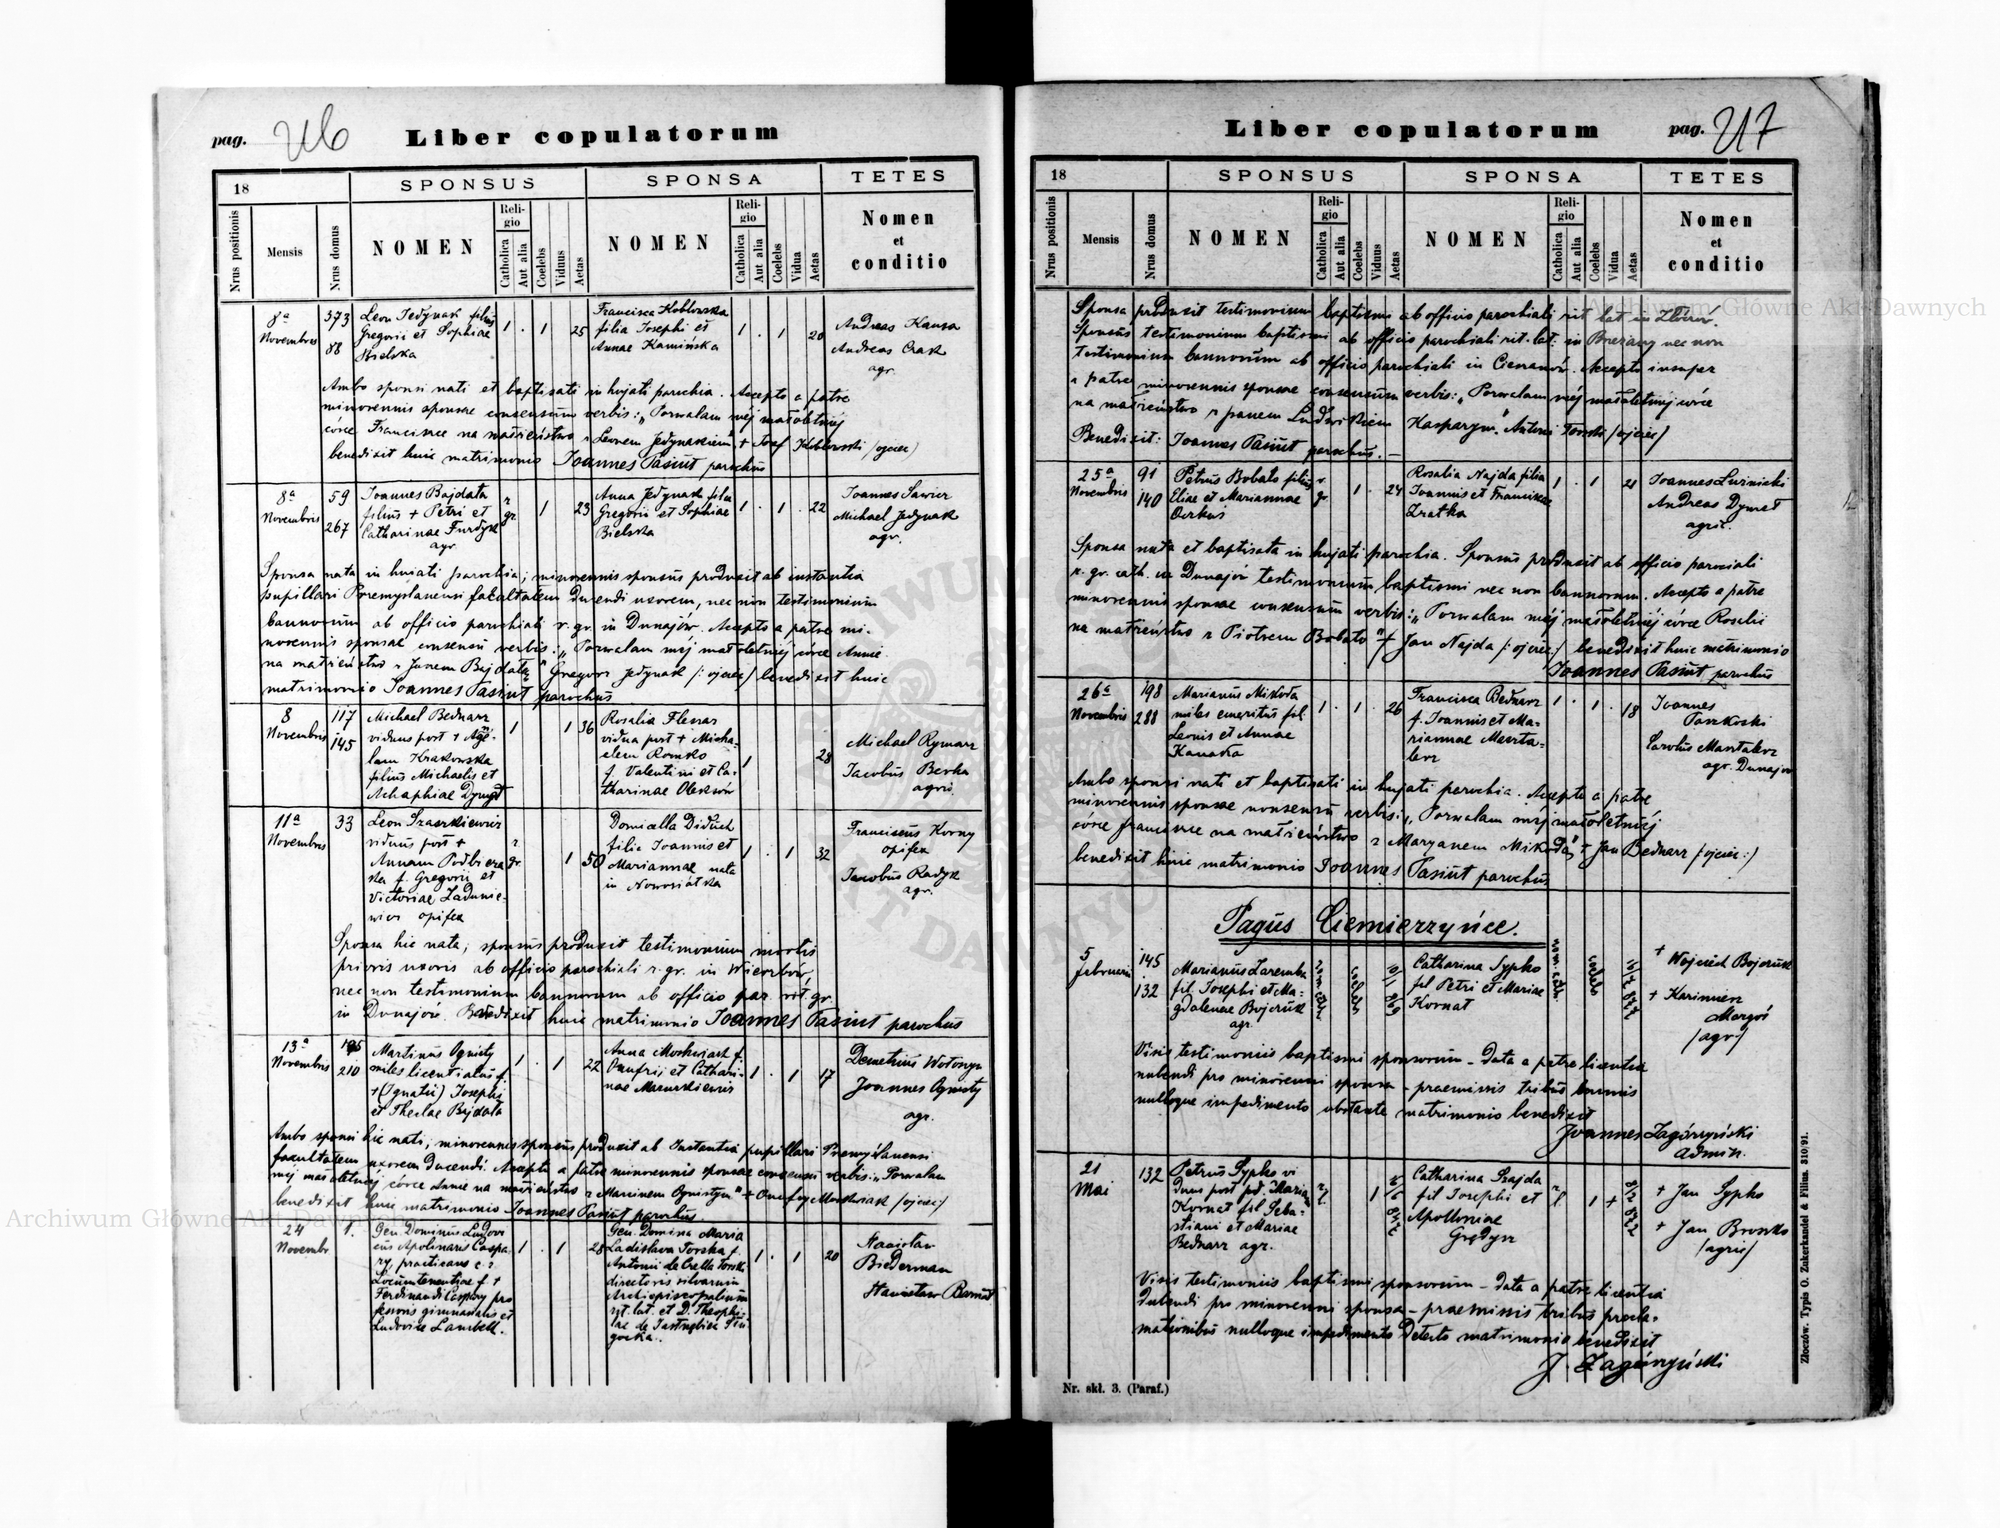 pag. 216 Liber copulatorum
18 SPONSUS SPONSA TETES
Nrus positionis Mensis Nrus domus NOMEN Religio Catholica Aut alia Coelebs Viduus Aetas NOMEN Religio Catholica Aut alia Coelebs Vidua Aetas Nomen et conditio
8a Novembris 373 88
Leon Jedynak filius
Gregorii et Sophiae
Bielska
1 . 1 25
Francisca Koblowska
filia Josephi et
Annae Kamińska
1 . 1 20
Andreas Kausa
Andreas Czak
agr.
Ambo sponsi nati et baptisati in hujati parochia. Accepto a patre
minorennis sponsae consensum verbis: „Pozwalam mej małoletniej
córce Franciszce na małżeństwo z Leonem Jedynakiem" + Josef Koblowski /ojciec/
benedixit huic matrimonio Joannes Pasiut parochus
8a Novembris 59 267
Joannes Bajdata
filius + Petri et
Catharinae Furdyk
agr.
r. gr. 1 23
Anna Jedynak filia
Gregorii et Sophiae
Bielska
1 . 1 . 22
Joannes Sawicz
Michael Jedynak
agr.
Sponsa nata in hujati parochia; minorennis sponsus produxit ab instantia
pupillari Przemyslanensi facultatem ducendi uxorem, nec non testimonium
bannorum ab officio parochiali r. gr. in Dunajów. Accepto a patre mi-
norennis sponsae consensu verbis: „Pozwalam mej małoletniej córce Annie
na małżeństwo z Janem Bajdatą" Gregorz Jedynak /: ojciec/ benedixit huic
matrimonio Joannes Pasiut parochus
8 Novembris 117 145
Michael Bednarz
viduus post +
lam Krakowska
filius Michaelis et
Achaphiae
1 1 36
Rosalia Flessas
vidua post + Micha-
elem Romko
f. Valentini et Ca-
tharinae
1 28
Michael Rymarz
Jacobus Berka
agric.
11a Novembris 33
Leon Szaszkiewicz
viduus post +
Annam
f. Gregorii et
Victoriae Zadunie-
wicz opifex
r. gr. 1 50
Domicella Diduch
filia Joannis et
Mariannae nata
in Nowosiółka
1 . 1 32
Franciscus Korny
opifex
Jacobus Radyk
agr.
Sponsa hic nata; sponsus produxit testimonium mortis
prioris uxoris ab officio parochiali r. gr. in
nec non testimonium bannorum ab officio par. rit. gr.
in Dunajów. Benedixit huic matrimonio Joannes Pasiut parochus
13a Novembris 195 210
Martinus Ognisty
miles licentiatus f.
+ (Ignatii) Josephi
et Theclae Bajdata
1 . 1 22
Anna Moskwiak f.
Onufrii et Cathari-
nae Mazurkiewicz
1 . 1 17
Demetrius Wołoszyn
Joannes Ognisty
agr.
Ambo sponsi hic nati, minorennis sponsus produxit ab Instantia pupillari Przemyślanensi
facultatem uxorem ducendi. Accepto a patre minorennis sponsae consensu verbis: „Pozwalam
mej małoletniej córce Annie na małżeństwo z Marcinem Ognistym" + Onufry Moskwiak /ojciec/
benedixit huic matrimonio Joannes Pasiut parochus.
24 Novembr 1.
Gen. Dominus Ludovi
cus Apolinaris Caspa
ry, practicans c. r.
Locumtenentiae f. +
Ferdinandi Caspary pro
fessoris gimnasialis et
Ludovicae Lambell.
1 . 1 28
Gen. Domina Maria
Ladislava Torska f.
Antonii de Torski
directoris silvarum
Archiepiscopalium
rit. lat. et D. Theophi-
lae de

1 . 1 20
Stanisław
Biederman
Stanisław
pag. 217 Liber copulatorum
18 SPONSUS SPONSA TETES
Nrus positionis Mensis Nrus domus NOMEN Religio Catholica Aut alia Coelebs Viduus Aetas NOMEN Religio Catholica Aut alia Coelebs Vidua Aetas Nomen et conditio
Sponsa produxit testimonium baptismi ab officio parochiali rit. lat. in Zborów.
Sponsus testimonium baptismi ab officio parochiali rit. lat. in Brzeżany nec non
testimonium bannorum ab officio parochiali in Accepto insuper
a patre minorennis sponsae consensum verbis: „Pozwalam mej małoletniej córce
na małżeństwo z panem Ludwikiem Kasparym". Antoni Torski /ojciec/
Benedixit: Joannes Pasiut parochus. —
25a Novembris 91 140
Petrus Bobato filius
Eliae et Mariannae

r. gr. 1 . 24
Rosalia Najda filia
Joannis et Franciszka
Zratka
1 . 1 . 21
Joannes Luźnicki
Andreas Dymet
agric.
Sponsa nata et baptisata in hujati parochia. Sponsus produxit ab officio parociali
r. gr. cath. in Dunajów testimonium baptismi nec non bannorum. Accepto a patre
minorennis sponsae consensum verbis: „Pozwalam mej małoletniej córce Rosalii
na małżeństwo z Piotrem Bobato" + Jan Najda /: ojciec:/ benedixit huic matrimonio
Joannes Pasiut parochus
26a Novembris 198 288
Marianus Mikoda
miles emeritus fil.
Leonis et Annae
Kanada
1 . 1 . 26
Francisca Bednarz
f. Joannis et Ma-
riannae Maszta-
lerz
1 . 1 . 18
Joannes
Paszkoski
Carolus Masztalerz
agr. Dunajow
Ambo sponsi nati et baptisati in hujati parochia. Accepto a patre
minorennis sponsae consensu verbis: „Pozwalam mej małoletniej
córce Franciszce na małżeństwo z Maryanem Mikodą" + Jan Bednarz /ojciec:/
benedixit huic matrimonio Joannes Pasiut parochus
Pagus Ciemierzyńce.
5 februarii 145 132
Marianus Zaremba
fil. Josephi et Ma-
gdalenae Bojczuk
agr.
coelebs
Catharina Sypko
fil Petri et Mariae
Kornat
coelebs
+ Wojciech Bojczuk
+ Kazimierz
Margoś
/agr/
Visis testimoniis baptismi sponsorum – data a patre licentia
nubendi pro minorenni sponsa – praemissis tribus bannis
nulloque impedimento obstante matrimonio benedixit
Joannes Zagórzyński
Admin.
21 Mai 132
Petrus Sypko vi
duus post pd. Maria
Kornat fil Seba-
stiani et Mariae
Bednarz agr.
r. l. 1
Catharina Szajda
fil Josephi et
Apolloniae
Grędysz
r. l. 1 +
+ Jan Sypko
+ Jan Brosko
/agric/
Visis testimoniis baptismi sponsorum – data a patre licentia
dubendi pro minorenni sponsa – praemissis tribus procla-
mationibus nulloque impedimento detecto matrimonio benedixit
J. Zagórzyński
Nr. skł. 3. (Paraf.)
Złoczów. Typis O. Zukerkandel & Filius. 310/91.
Archiwum Główne Akt Dawnych
Archiwum Główne Akt Dawnych